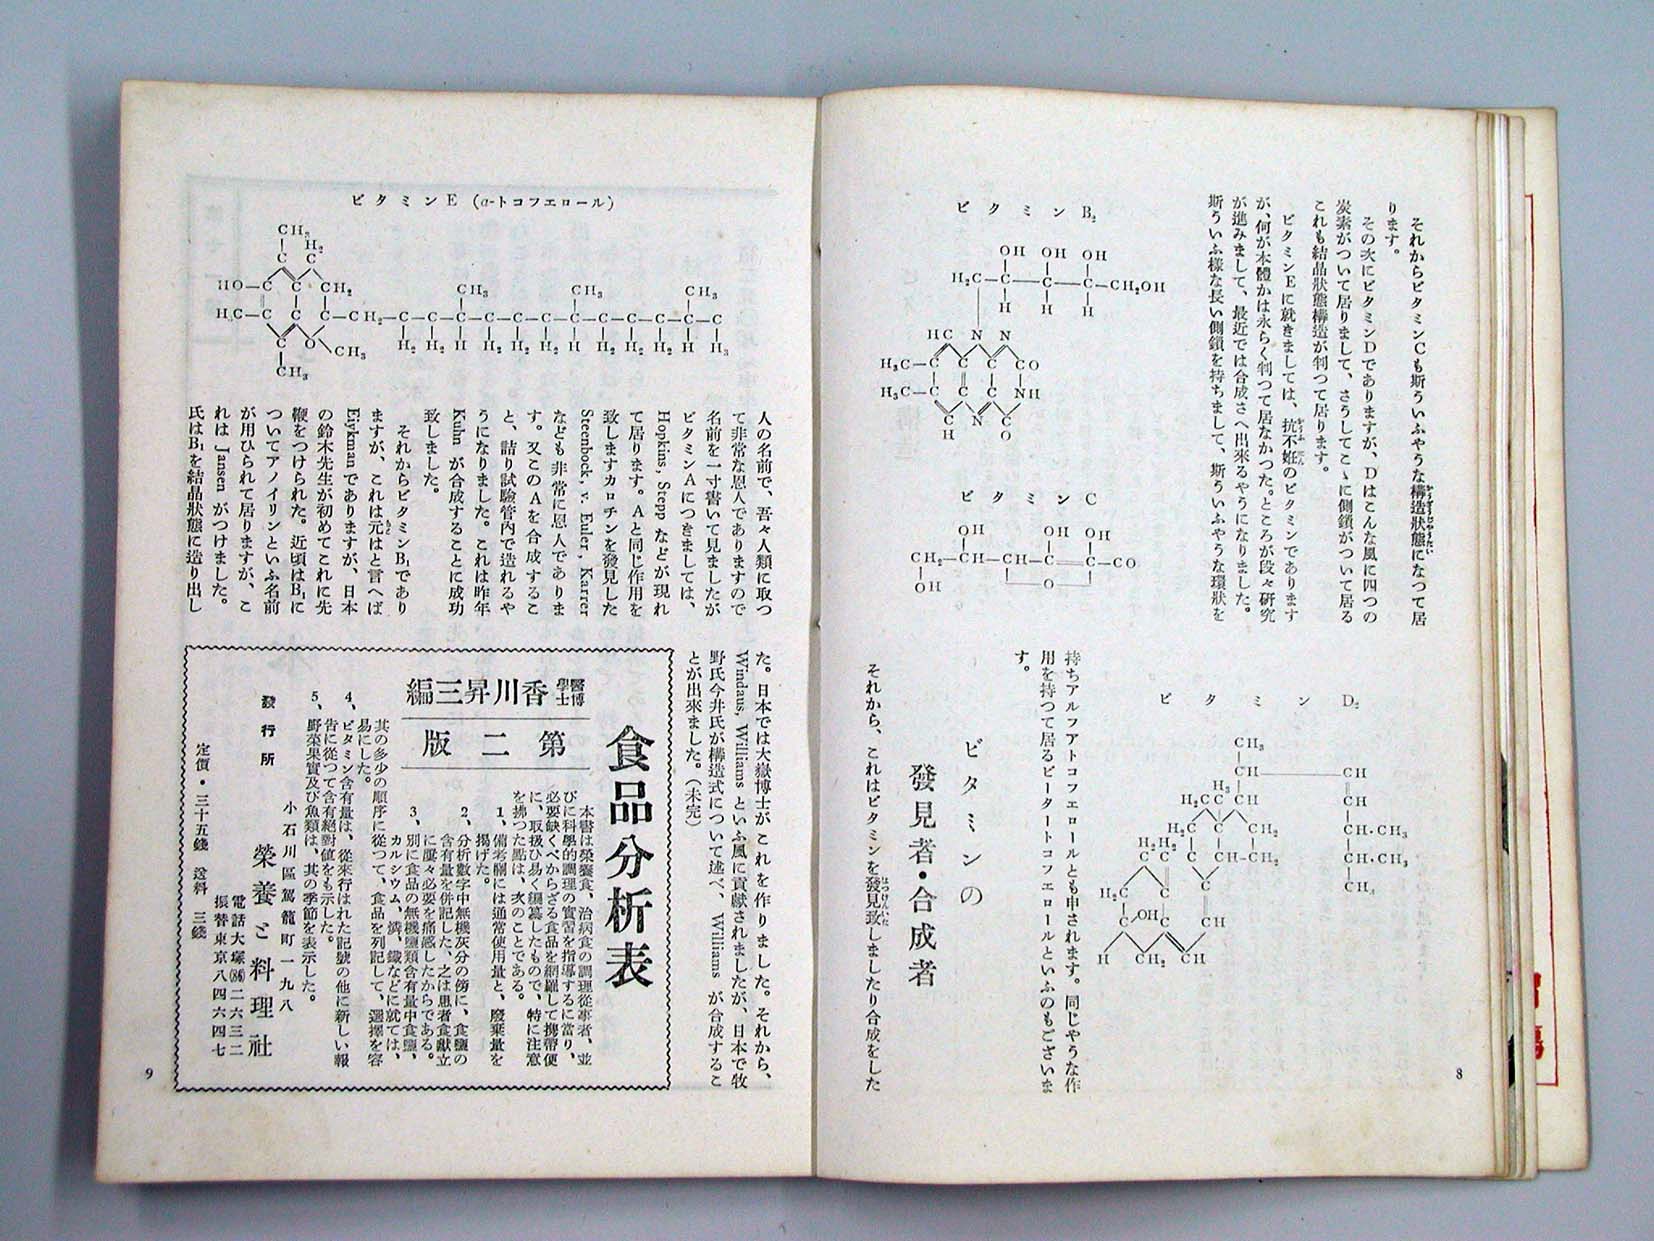 それからビタミンCも斯ういふやうな構造狀態になつて居
ります。
その次にビタミンDでありますが、Dはこんな風に四つの
炭素がついて居りまして、さうしてこゝに側鎖がついて居る
これも結晶狀態構造が判つて居ります。
ビタミンEに就きましては、抗不姙のビタミンであります
が、何が本體かは永らく判つて居なかつた。ところが段々硏究
が進みまして、最近では合成さへ出來るやうになりました。
斯ういふ樣な長い側鎖を持ちまして、斯ういふやうな環狀を
ビタミンB₂
OH OH OH
H₂C—C—C—C—CH₂OH
H H H
HC N N
H₃C—C C C CO
H₃C—C C C NH
C N C
H O
ビタミンC
OH OH OH
CH₂—CH—CH—C=C—CO
OH O
ビタミンD₂
CH₃
CH CH
H₃
H₂C C CH CH
H₂C C CH₂ CH·CH₃
H₂ H₂
C C C CH-CH₂ CH·CH₃
H₂C C C CH₃
C OH C CH
H CH₂ CH
持ちアルフアトコフエロールとも申されます。同じやうな作
用を持つて居るビータートコフエロールといふのもございま
す。
ビタミンの
發見者・合成者
それから、これはビタミンを發見致しましたり合成をした
8
ビタミンE (α-トコフエロール)
CH₃ H₂
C C
HO—C C CH₂ CH₃ CH₃ CH₃
H₃C—C C C—CH₂—C—C—C—C—C—C—C—C—C—C—C—C
C O CH₃ H₂ H₂ H H₂ H₂ H₂ H H₂ H₂ H₂ H H₃
CH₃
人の名前で、吾々人類に取つ
て非常な恩人でありますので
名前を一寸書いて見ましたが
ビタミンAにつきましては、
Hopkins, Stepp などが現れ
て居ります。Aと同じ作用を
致しますカロチンを發見した
Steenbock, v. Euler, Karrer
なども非常に恩人でありま
す。又このAを合成するこ
と、詰り試驗管內で造れるや
うになりました。これは昨年
Kuhn が合成することに成功
致しました。
それからビタミンB₁であり
ますが、これは元はと言へば
Eykmanでありますが、日本
の鈴木先生が初めてこれに先
鞭をつけられた。近頃はB₁に
ついてアノイリンといふ名前
が用ひられて居りますが、こ
れは Jansen がつけました。
氏はB₁を結晶狀態に造り出し
た。日本では大嶽博士がこれを作りました。それから、
Windaus, Williams といふ風に貢獻されましたが、日本で牧
野氏今井氏が構造式について述べ、Williams が合成するこ
とが出來ました。(未完)
食品分析表
醫學博士 香川昇三編
第二版
本書は榮養食、治病食の調理從事者、並
びに科學的調理の實習を指導するに當り、
必要缺くべからざる食品を網羅して携帶便
に、取扱ひ易く編纂したもので、特に注意
を拂つた點は、次のことである。
1、備考欄には通常使用量と、廢棄量を
揭げた。
2、分析數字中無機灰分の傍に、食鹽の
含有量を倂記した、之は患者食獻立
に屢々必要を痛感したからである。
3、別に食品の無機鹽類含有量中食鹽、
カルシウム、燐、鐵などに就ては、
其の多少の順序に從つて、食品を列記して、選擇を容
易にした。
4、ビタミン含有量は、從來行はれた記號の他に新しい報
告に從つて含有絕對値をも示した。
5、野菜果實及び魚類は、其の季節を表示した。
發行所
小石川區駕籠町一九八
榮養と料理社
電話大塚(86)二六三二
振替東京八四六四七
定價・三十五錢 送料 三錢
9